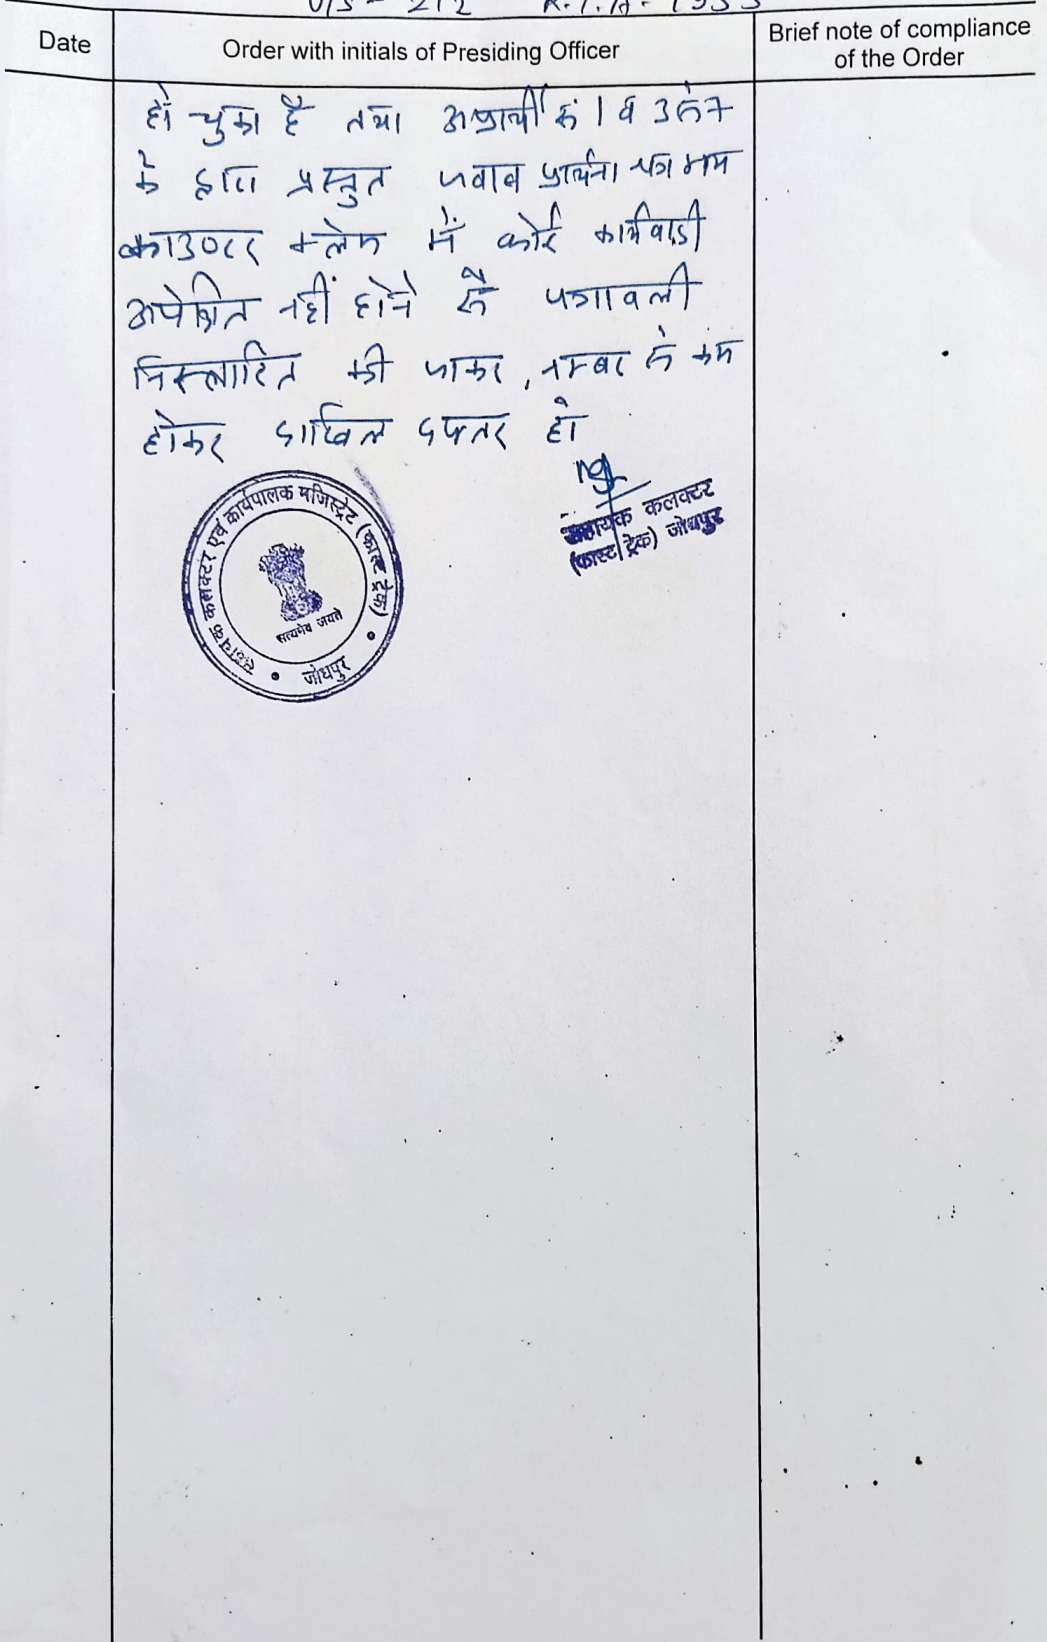 U/S - 212 R.T.A. 1955
Date
Order with initials of Presiding Officer
Brief note of compliance
of the Order
हो चुका है तथा अप्रार्थी सं 1 व 3 से 7
के द्वारा प्रस्तुत जवाब प्रार्थना पत्र मय
काउण्टर क्लेम में कोई कार्यवाही
अपेक्षित नहीं होने से पत्रावली
निस्तारित की जाकर, नम्बर से कम
होकर दाखिल दफ्तर हो
सहायक कलक्टर
(फास्ट ट्रेक) जोधपुर
सहायक कलक्टर एवं कार्यपालक मजिस्ट्रेट (फास्ट ट्रेक)
सत्यमेव जयते
जोधपुर